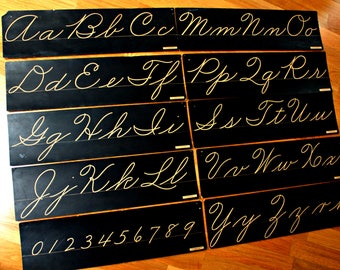 Aa Bb Cc
Dd Ee Ff
Gg Hh Ii
Jj Kk Ll
0 1 2 3 4 5 6 7 8 9
Mm Nn Oo
Pp Qq Rr
Ss Tt Uu
Vv Ww Xx
Yy Zz